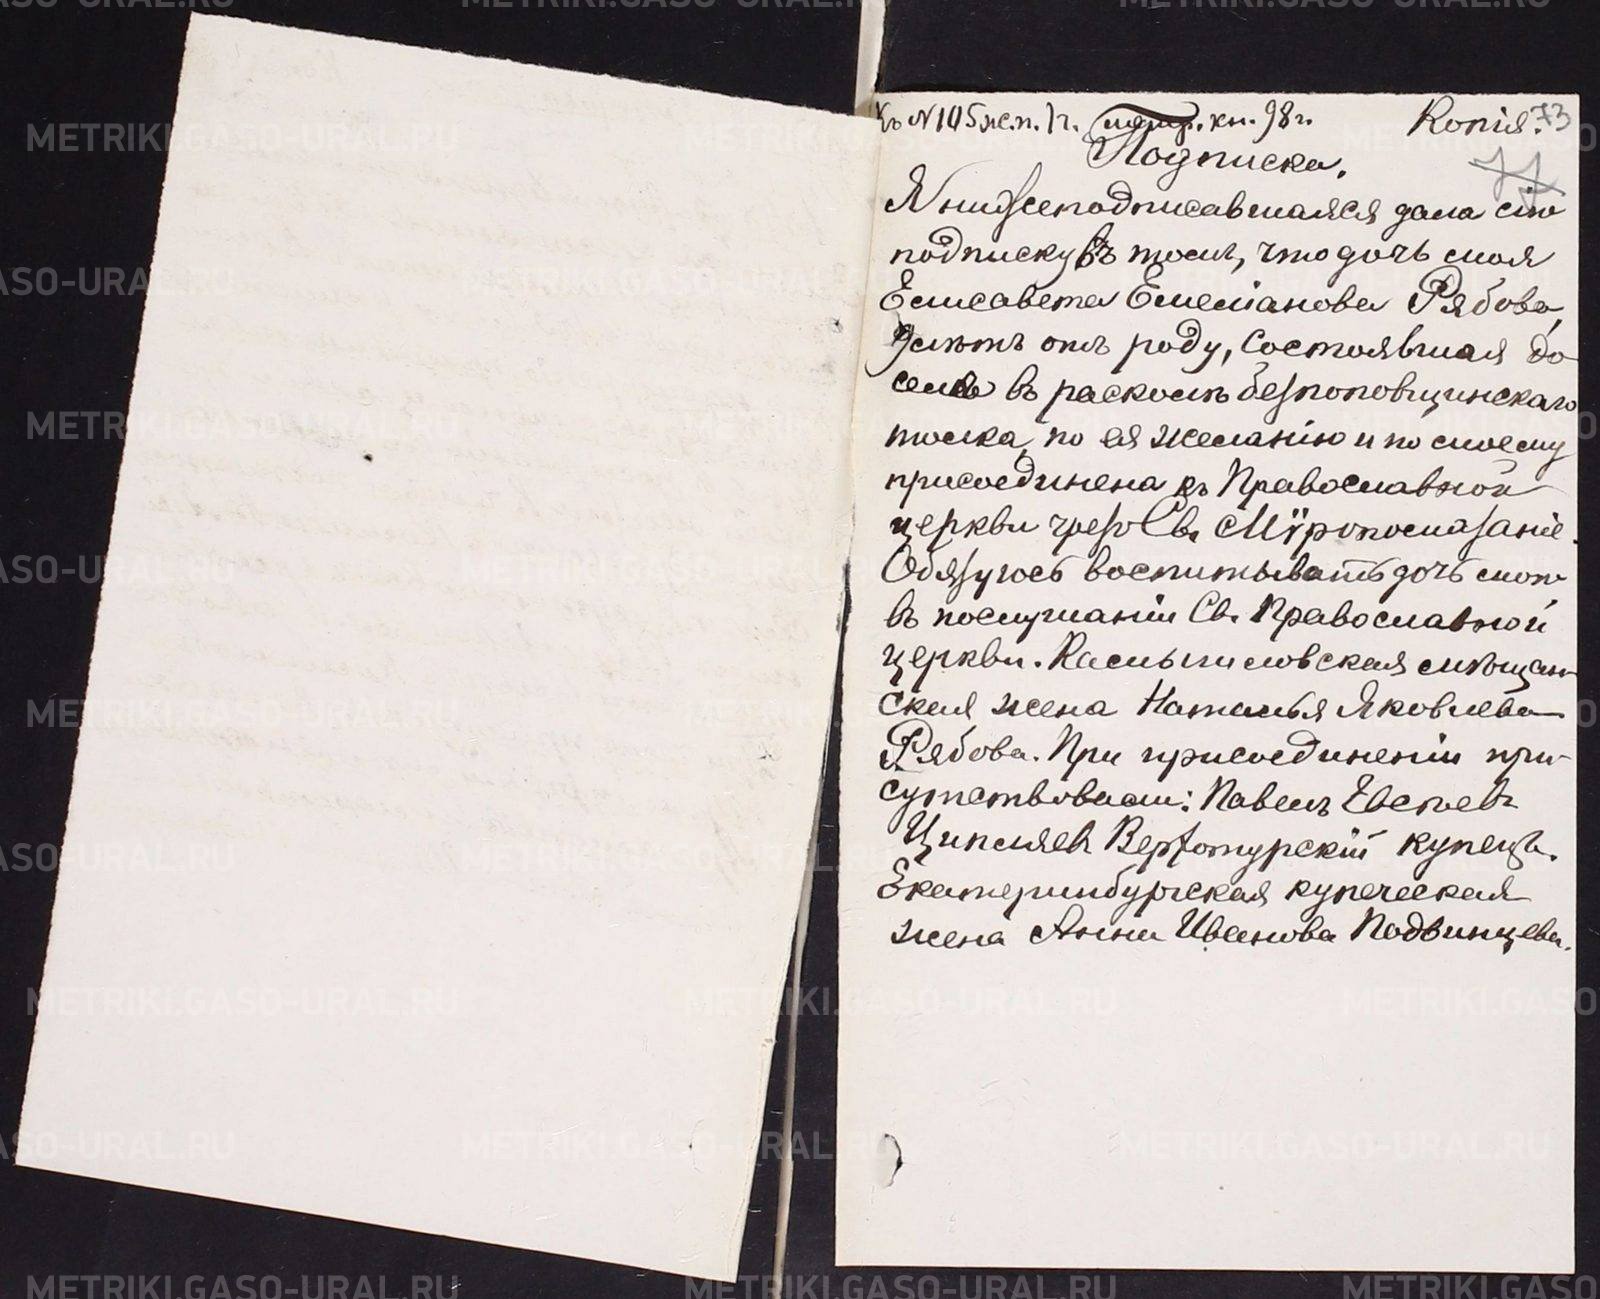 Къ № 105 ж.п. 1 ч. метр. кн. 98 г. Копія. 73
Подписка. 77
Я нижеподписавшаяся дала сію
подписку въ томъ, что дочь моя
Елисавета Емеліанова Рябова,
9 лѣтъ отъ роду, состоявшая до
селѣ въ расколѣ безпоповщинскаго
толка, по ея желанію и по моему
присоединена къ Православной
церкви чрезъ Св. Мѵропомазаніе.
Обязуюсь воспитывать дочь мою
въ послушаніи Св. Православной
церкви. Камышловская мѣщан-
ская жена Наталья Яковлева
Рябова. При присоединеніи при-
сутствовали: Павелъ
Ципляевъ Верхотурскій купецъ.
Екатеринбургская купеческая
жена Анна Иванова Подвинцева.
METRIKI.GASO-URAL.RU